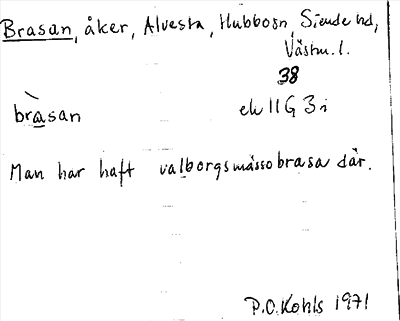 Brasan, åker, Alvesta, Hubbo sn, Siende hd,
Västm. l.
38
bràsan
ek 11G 3i
Man har haft valborgsmässobrasa där.
P.O. Kohls 1971